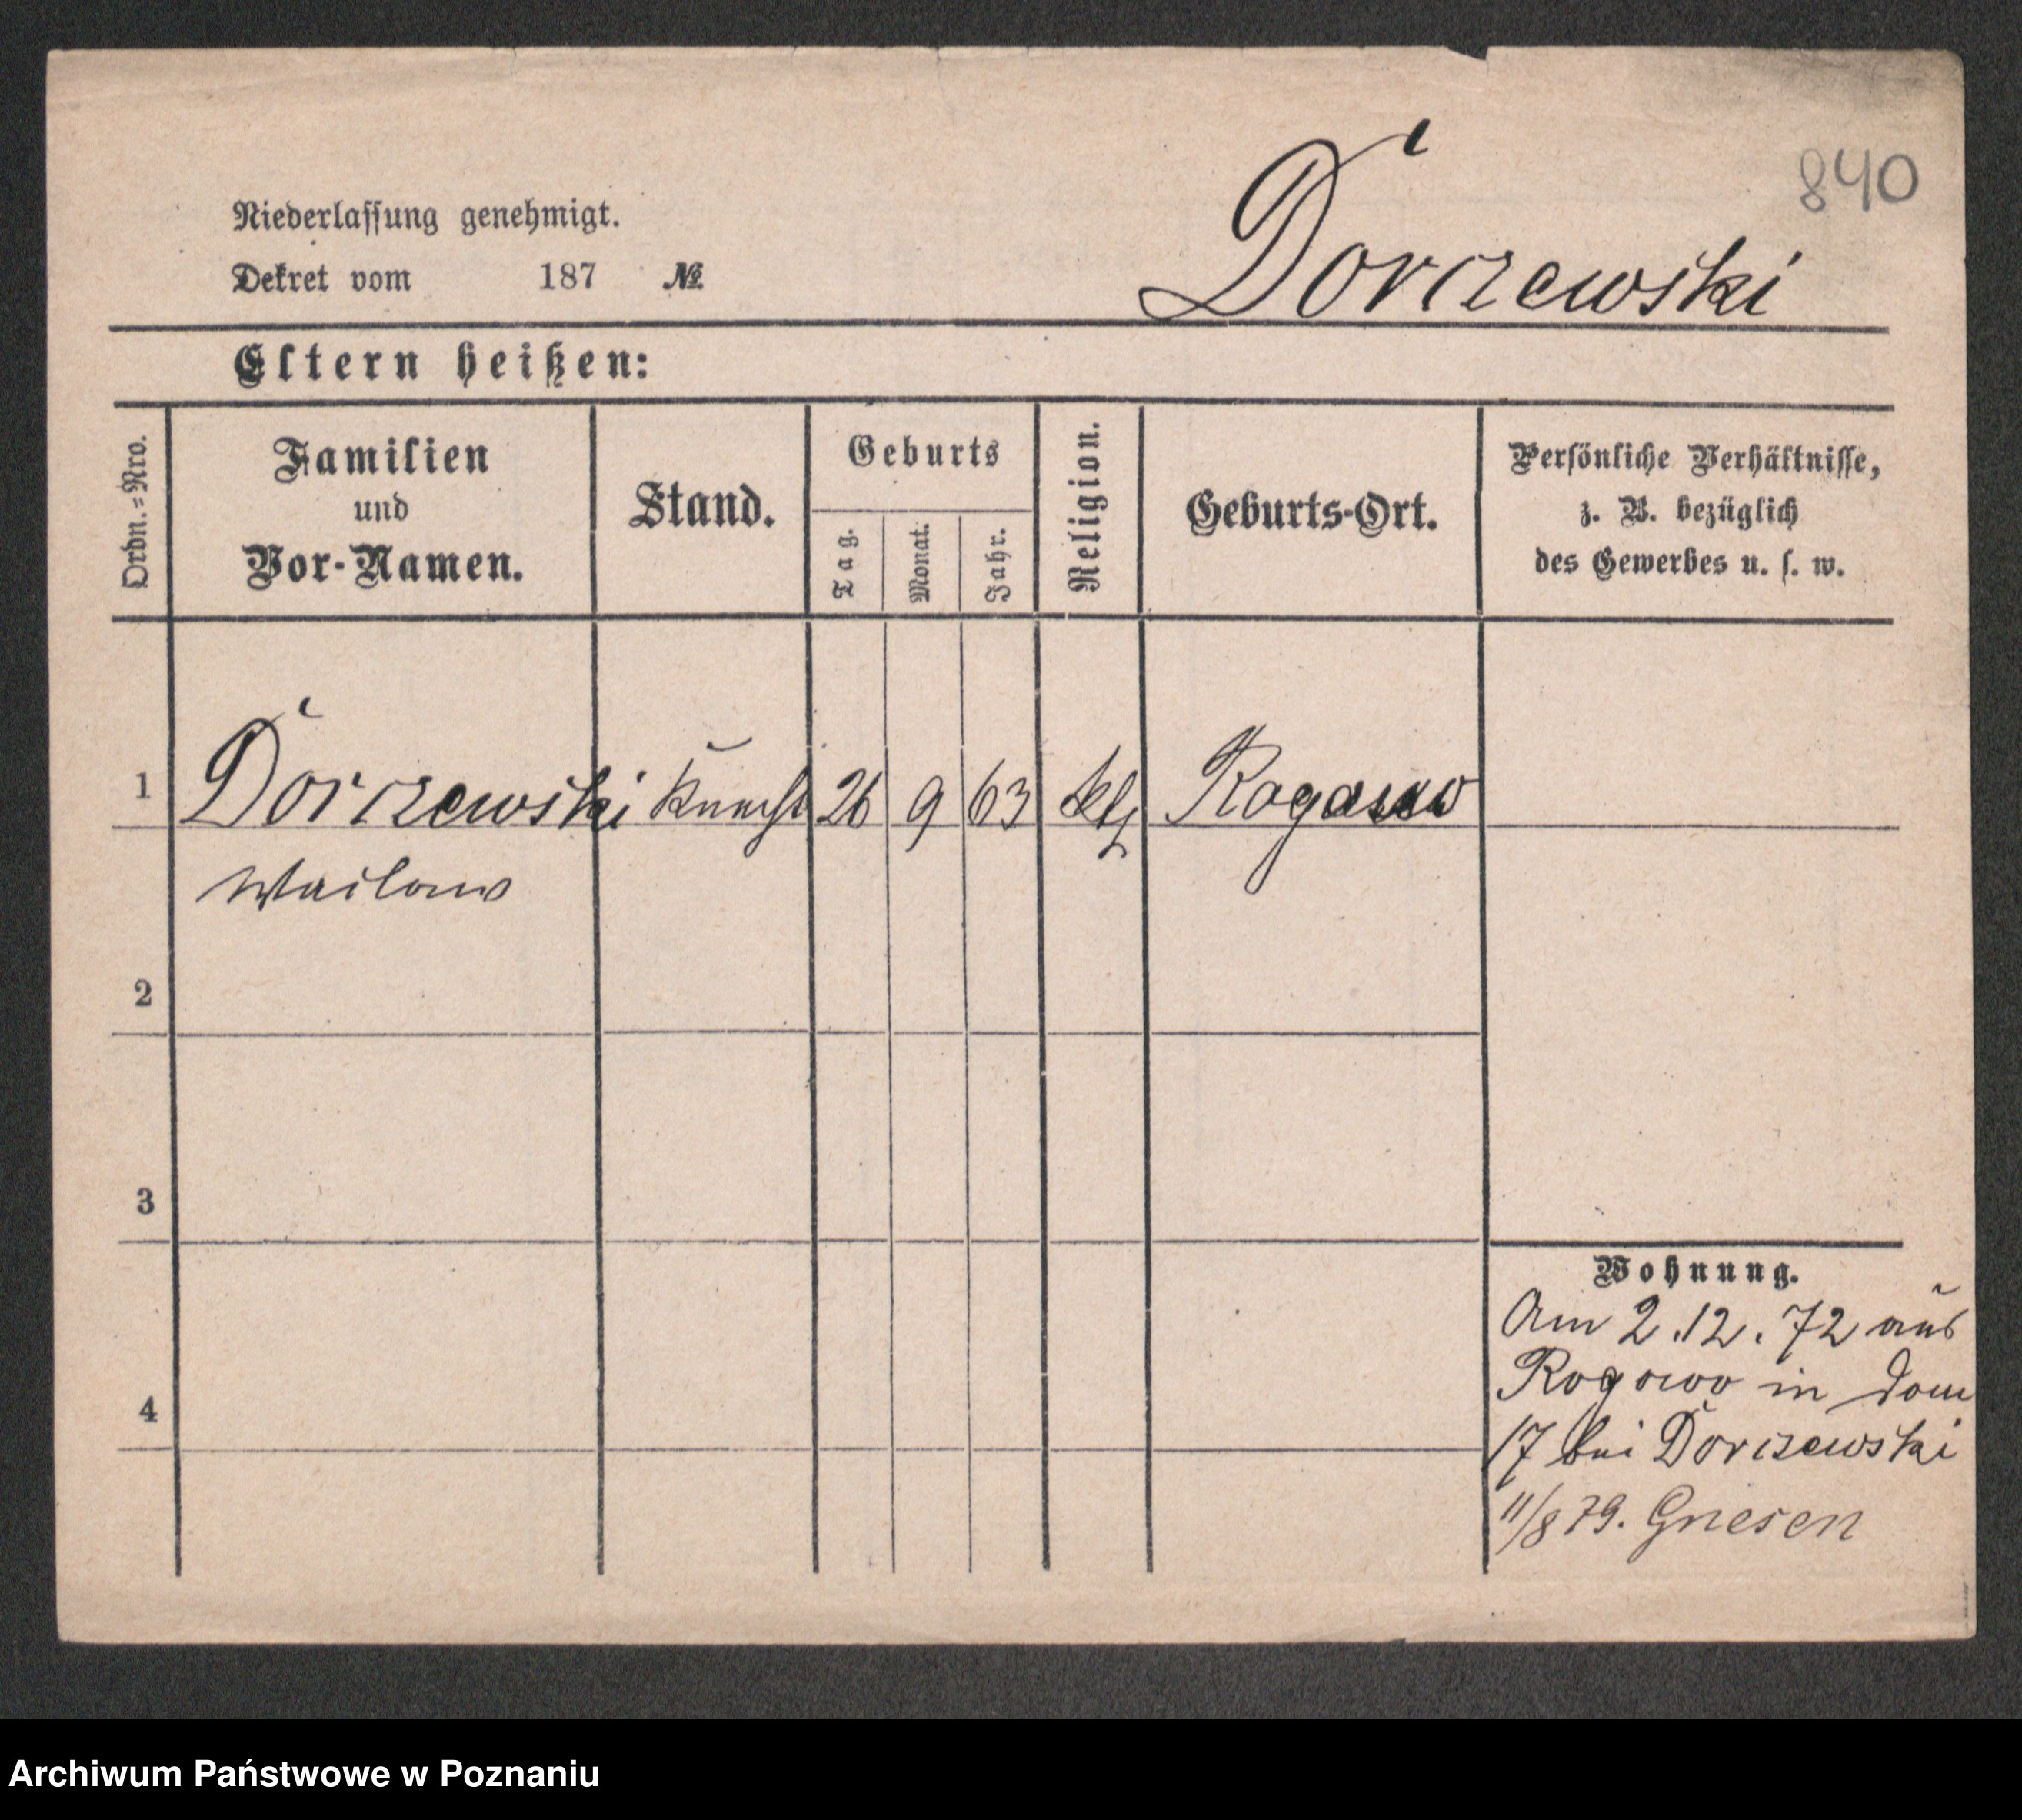 840
Dorczewski
Niederlassung genehmigt.
Dekret vom 187 №
Eltern heißen:
Ordn.=Nro.
Familien
und
Vor-Namen.
Stand.
Geburts
Tag.
Monat.
Jahr.
Religion.
Geburts-Ort.
Persönliche Verhältnisse,
z. B. bezüglich
des Gewerbes u. s. w.
1 Dorczewski Knecht 26 9 63 kth Rogowo
Waclaw
2
3
4
Wohnung.
Am 2.12.72 aus
Rogowo in Dom
17 bei Dorczewski
11/8 79. Gnesen
Archiwum Państwowe w Poznaniu